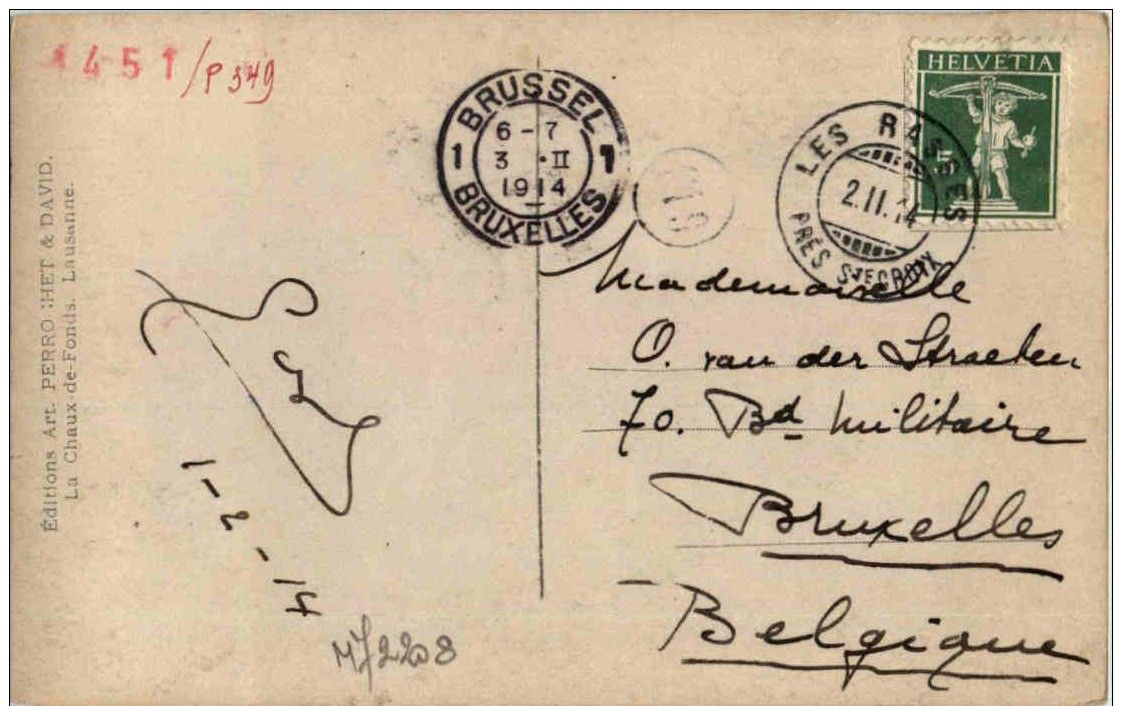 1451/P 349
BRUSSEL
6-7
3 · II
1914
1 1
BRUXELLES
HELVETIA
5
LES RASSES
2.II.14
PRÈS STE CROIX
Éditions Art. PERRO HET & DAVID.
La Chaux-de-Fonds. Lausanne.
1-2-14
Mademoiselle
O. van der Straeten
70. Bd Militaire
Bruxelles
Belgique